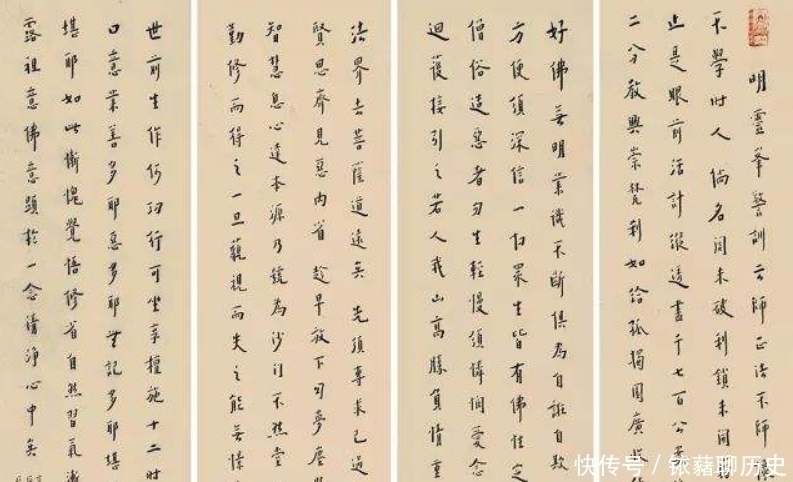 明靈峯警訓云師正法不師
不學時人倘名聞未破利鎖未開
止是眼前活計縱透盡千七百公
二分教興崇梵剎如給孤獨園廣
好佛無明業識不斷俱為自誑自欺
方便須深信一切眾生皆有佛性定
僧俗造惡者勿生輕慢須憐憫愛念
迴護接引之若人我山高勝負情重
法界去菩薩道遠矣先須專求己過
賢思齊見惡內省趁早放下勿夢塵
智慧息心達本源乃號為沙門不然堂
勤修而得之一旦藐視而失之能無
世前生作何功行可坐享檀施十二時
口意業善多耶惡多耶無記多耶堪
堪耶如此慚愧覺悟修省自然習氣漸
露祖意佛意顯於一念清淨心中矣
快传号/铱藉聊历史